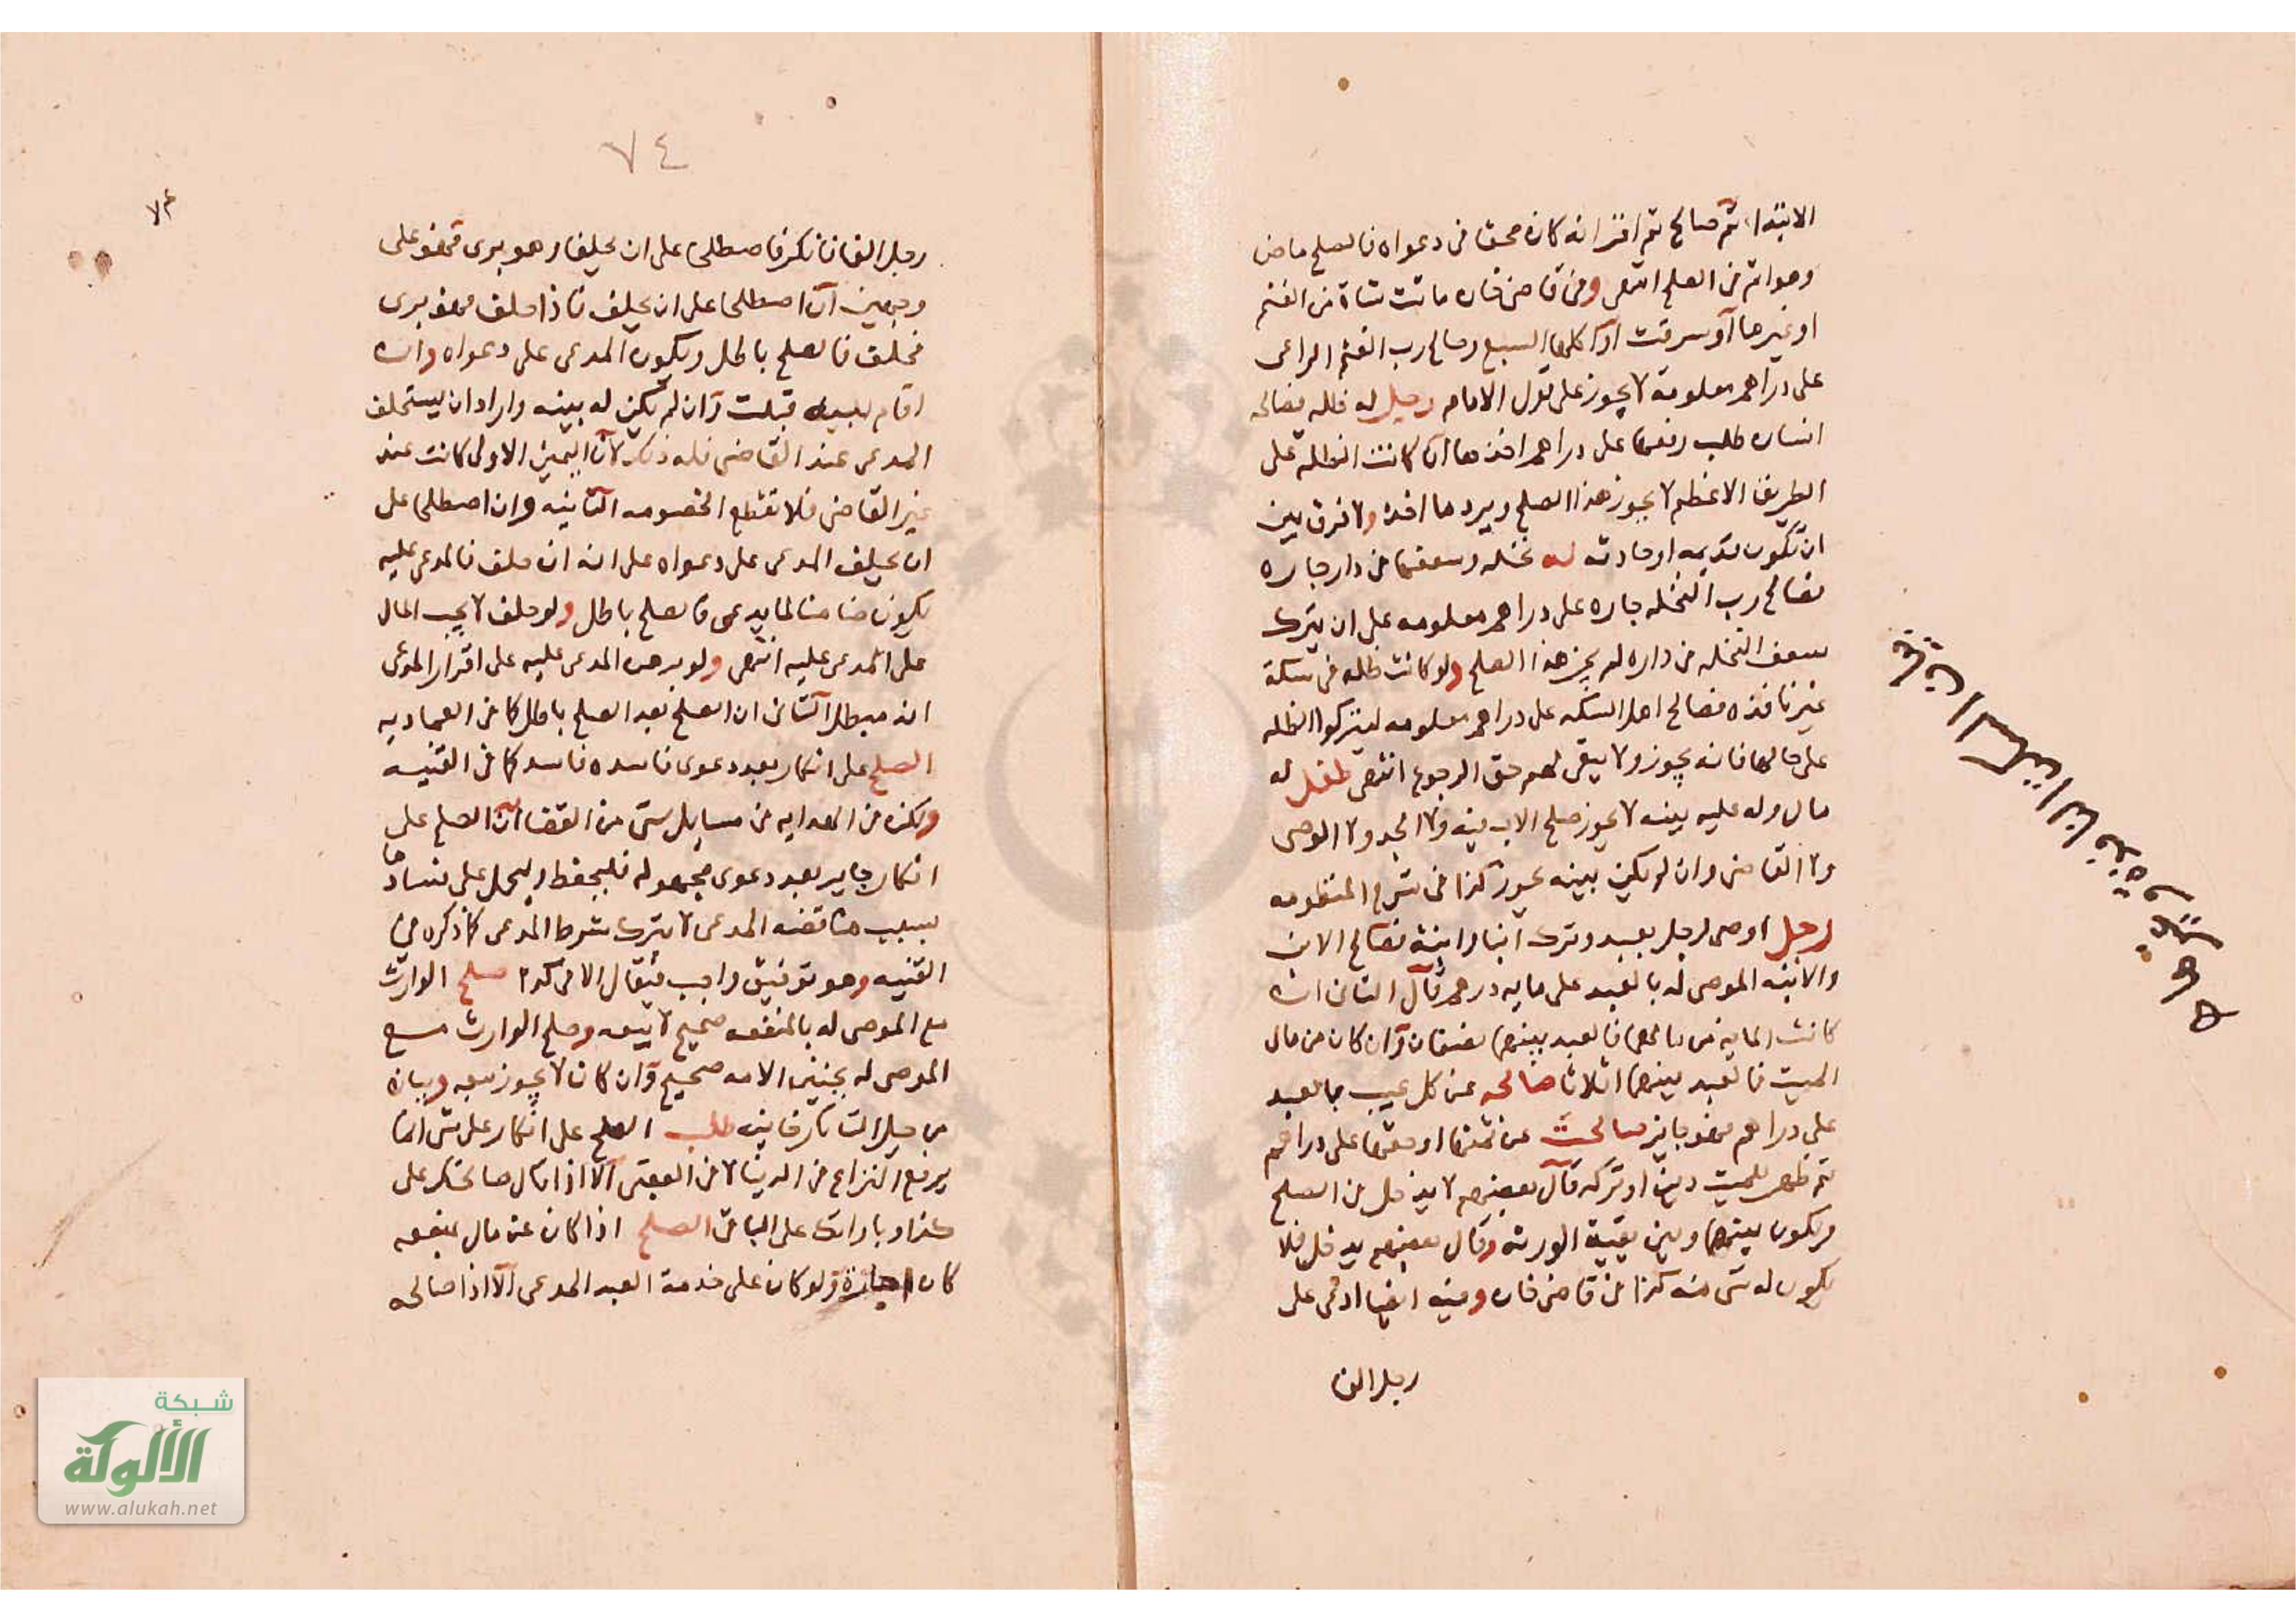 الابتدا ثم صالح ثم اقر انه كان محقا في دعواه فالصلح ماض
وهو اثم في الصلح انتهى وفي قاضي خان ماتت شاة من الغنم
او غيرها او سرقت او اكلها السبع وصالح رب الغنم الراعي
على دراهم معلومة لا يجوز على قول الامام رجل له ظله فصالحه
انسان طلب رفعها على دراهم اخذها ان كانت الظله على
الطريق الاعظم لا يجوز هذا الصلح ويرد ما اخذ ولا فرق بين
ان تكون قديمه او حادثه له نخله وسعفها في دار جاره
فصالح رب النخله جاره على دراهم معلومه على ان يترك
سعف النخله في داره لم يجز هذا الصلح ولو كانت ظله في سكة
غير نافذه فصالح اهل السكه على دراهم معلومه ليتركوا الظله
على حالها فانه يجوز ولا يبقى لهم حق الرجوع انتهى طفل له
مال وله عليه بينه لا يجوز صلح الاب فيه ولا الجد ولا الوصي
ولا القاضي وان لم يكن بينه يجوز كذا في شرح المنظومه
رجل اوصى لرجل بعبد وترك ابنا وابنة فصالح الابن
والابنه الموصى له بالعبد على مايه درهم قال الثاني ان
كانت المايه من مالهما فالعبد بينهما نصفان وان كان من مال
الميت فالعبد بينهما اثلاثا صالحه عن كل عيب بالعبد
على دراهم فهو جايز صالحت عن ثمنها او حقها على دراهم
ثم ظهر للميت دين او تركه قال بعضهم لا يدخل في الصلح
ويكون بينهما وبين بقية الورثه وقال بعضهم يدخل فلا
يكون له شي منه كذا في قاضي خان وفيه ايضا ادعى على
رجل الفا
٧٤
رجل الفا فانكر فاصطلحا على ان يحلف وهو بري فهو على
وجهين ان اصطلحا على ان يحلف فاذا حلف فهو بري
فحلف فالصلح باطل ويكون المدعي على دعواه وان
اقام البينه قبلت وان لم يكن له بينه واراد ان يستحلف
المدعى عند القاضي فله ذلك لان اليمين الاولى كانت عند
غير القاضي فلا تقطع الخصومه الثانيه وان اصطلحا على
ان يحلف المدعي على دعواه على انه ان حلف فالمدعى عليه
يكون ضامنا لما يدعى فالصلح باطل ولو حلف لا يجب المال
على المدعى عليه انتهى ولو برهن المدعى عليه على اقرار المدعي
انه مبطل الثاني ان الصلح بعد الصلح باطل كما في العماديه
الصلح على انكار بعد دعوى فاسده فاسد كما في القنيه
ولكن في الهدايه في مسايل شتى من القضا ان الصلح على
انكار جايز بعد دعوى مجهوله فليحفظ وليحمل على فسادها
بسبب مناقضه المدعي لا بترك شرط المدعي كما ذكره في
القنيه وهو توفيق واجب فيقال الا في كذا صلح الوارث
مع الموصى له بالمنفعه صحيح لا بيعه وصلح الوارث مع
الموصى له بجنين الامه صحيح وان كان لا يجوز بيعه وبيانه
في حيل التتارخانيه طلب الصلح على انكار على شي انما
يرفع النزاع في الدينا لا في العقبى الا اذا قال صالحتك على
كذا وباراتك على الباقي الصلح اذا كان عن مال بمنفعه
كان اجارة ولو كان على خدمة العبد المدعى الا اذا صالحه
شبكة
الألوكة
www.alukah.net